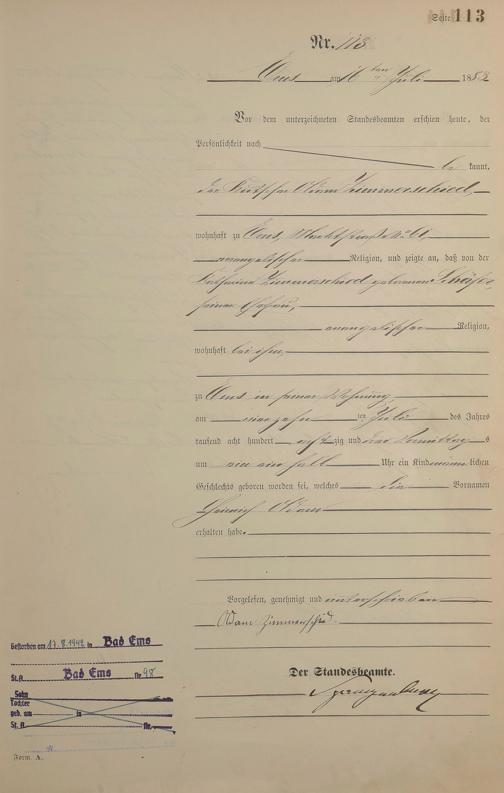 Seite 113
Nr. 113
Ems am 16 ten Juli 188
Vor dem unterzeichneten Standesbeamten erschien heute, der
Persönlichkeit nach
be kannt,
der Adam Zimmerschied,
wohnhaft zu Ems, Marktstraße No 61,
evangelischer Religion, und zeigte an, daß von der
Katharina Zimmerschied geborenen Schäfer,
seiner Ehefrau,
evangelischer Religion,
wohnhaft bei ihm,
zu Ems in seiner Wohnung,
am ten Juli des Jahres
tausend acht hundert achtzig und Vormittags
um ein halb Uhr ein Kind männlichen
Geschlechts geboren worden sei, welches die Vornamen
Heinrich Adam
erhalten habe.
Vorgelesen, genehmigt und unterschrieben
Adam Zimmerschied.
Der Standesbeamte.
Gestorben am 17.8.1942 in Bad Ems
St.A. Bad Ems Nr. 98
Sohn
Tochter
geb. am in
St. A. Nr.
Form. A.